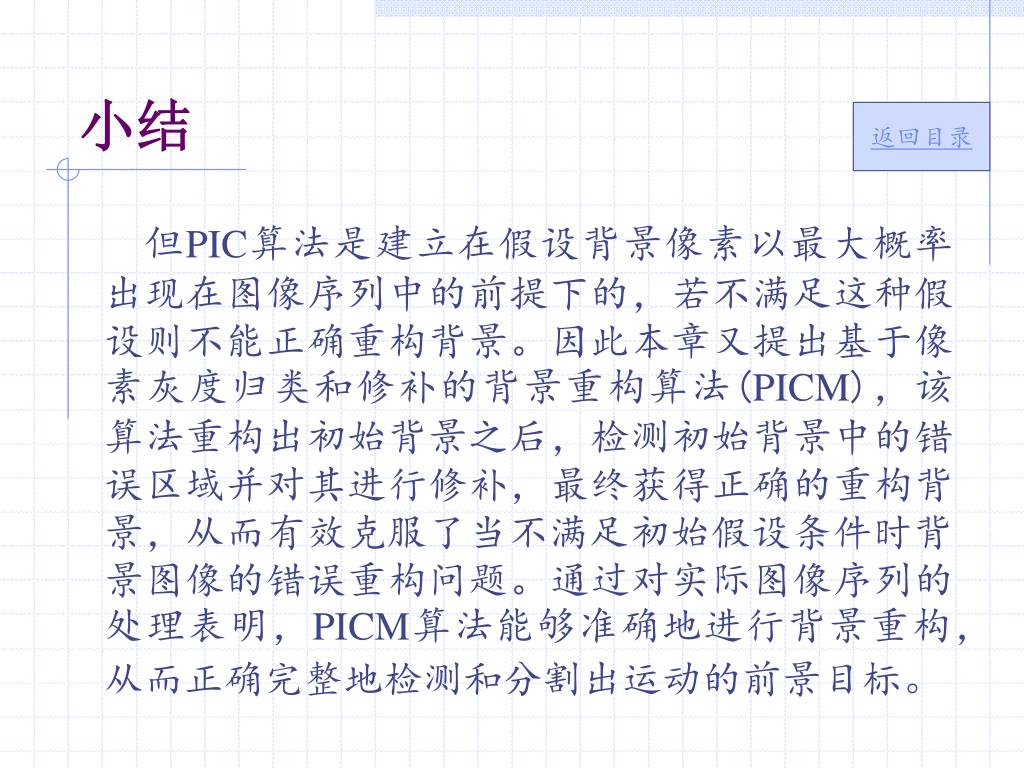 小结
返回目录
但PIC算法是建立在假设背景像素以最大概率
出现在图像序列中的前提下的，若不满足这种假
设则不能正确重构背景。因此本章又提出基于像
素灰度归类和修补的背景重构算法(PICM)，该
算法重构出初始背景之后，检测初始背景中的错
误区域并对其进行修补，最终获得正确的重构背
景，从而有效克服了当不满足初始假设条件时背
景图像的错误重构问题。通过对实际图像序列的
处理表明，PICM算法能够准确地进行背景重构，
从而正确完整地检测和分割出运动的前景目标。